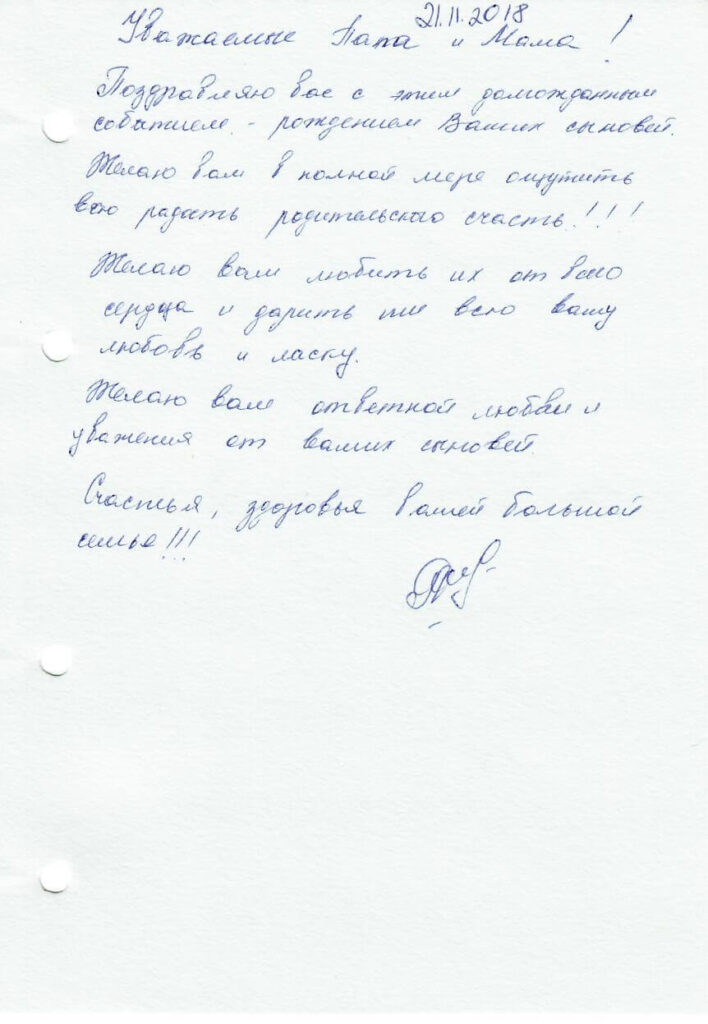 21.11.2018
Уважаемые Папа и Мама !
Поздравляю вас с этим долгожданным
событием. - рождением Ваших сыновей.
Желаю вам в полной мере ощутить
всю радость родительского счасть!!!
Желаю вам любить их от всего
сердца и дарить им всю вашу
любовь и ласку.
Желаю вам ответной любви и
уважения от ваших сыновей.
Счастья, здоровья вашей большой
семье!!!